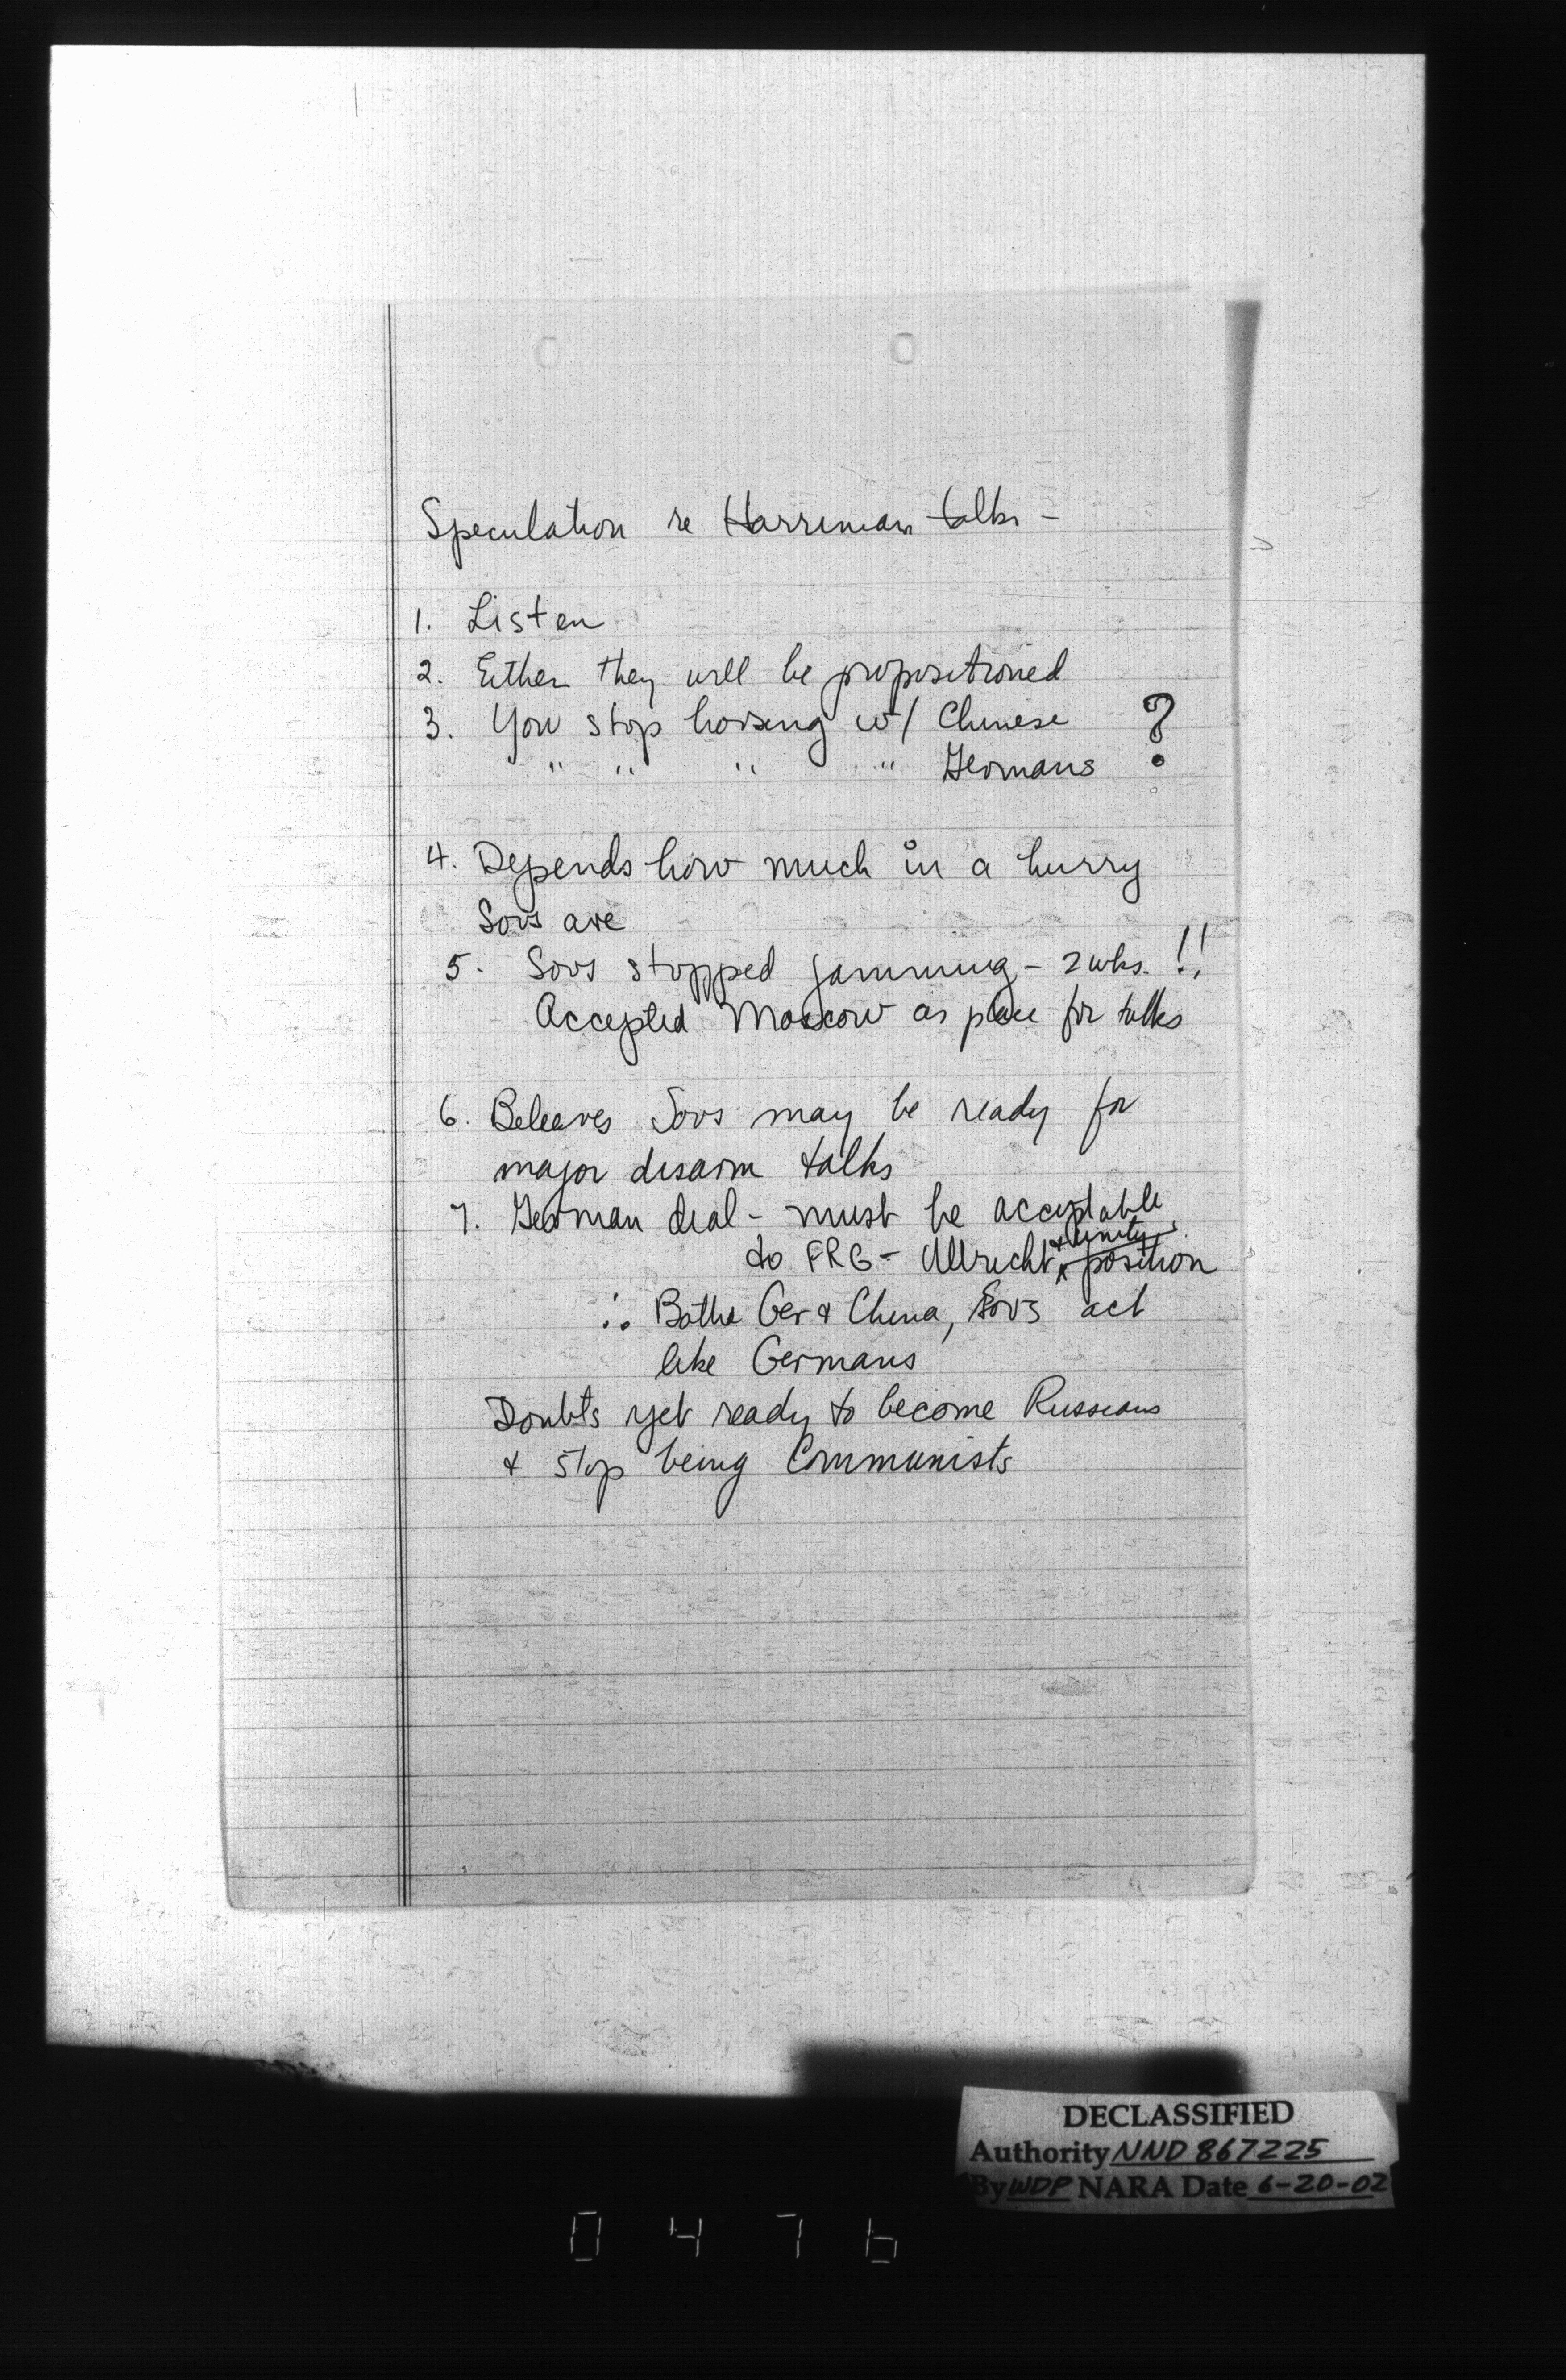 Speculation re Harriman talks -
1. Listen
2. Either they will be propositioned
3. You stop horsing w/ Chinese ?
" " " " Germans
4. Depends how much in a hurry
Sovs are
5. Sovs stopped jamming - 2 wks. !!
Accepted Moscow as place for talks
6. Beleaves Sovs may be ready for
major disarm talks
7. German deal - must be acceptable
to FRG - Ulbricht & unity position
∴ Both Ger & China, Sovs act
like Germans
Doubts yet ready to become Russians
& stop being Communists
DECLASSIFIED
Authority NND 867225
By WDP NARA Date 6-20-02
0476